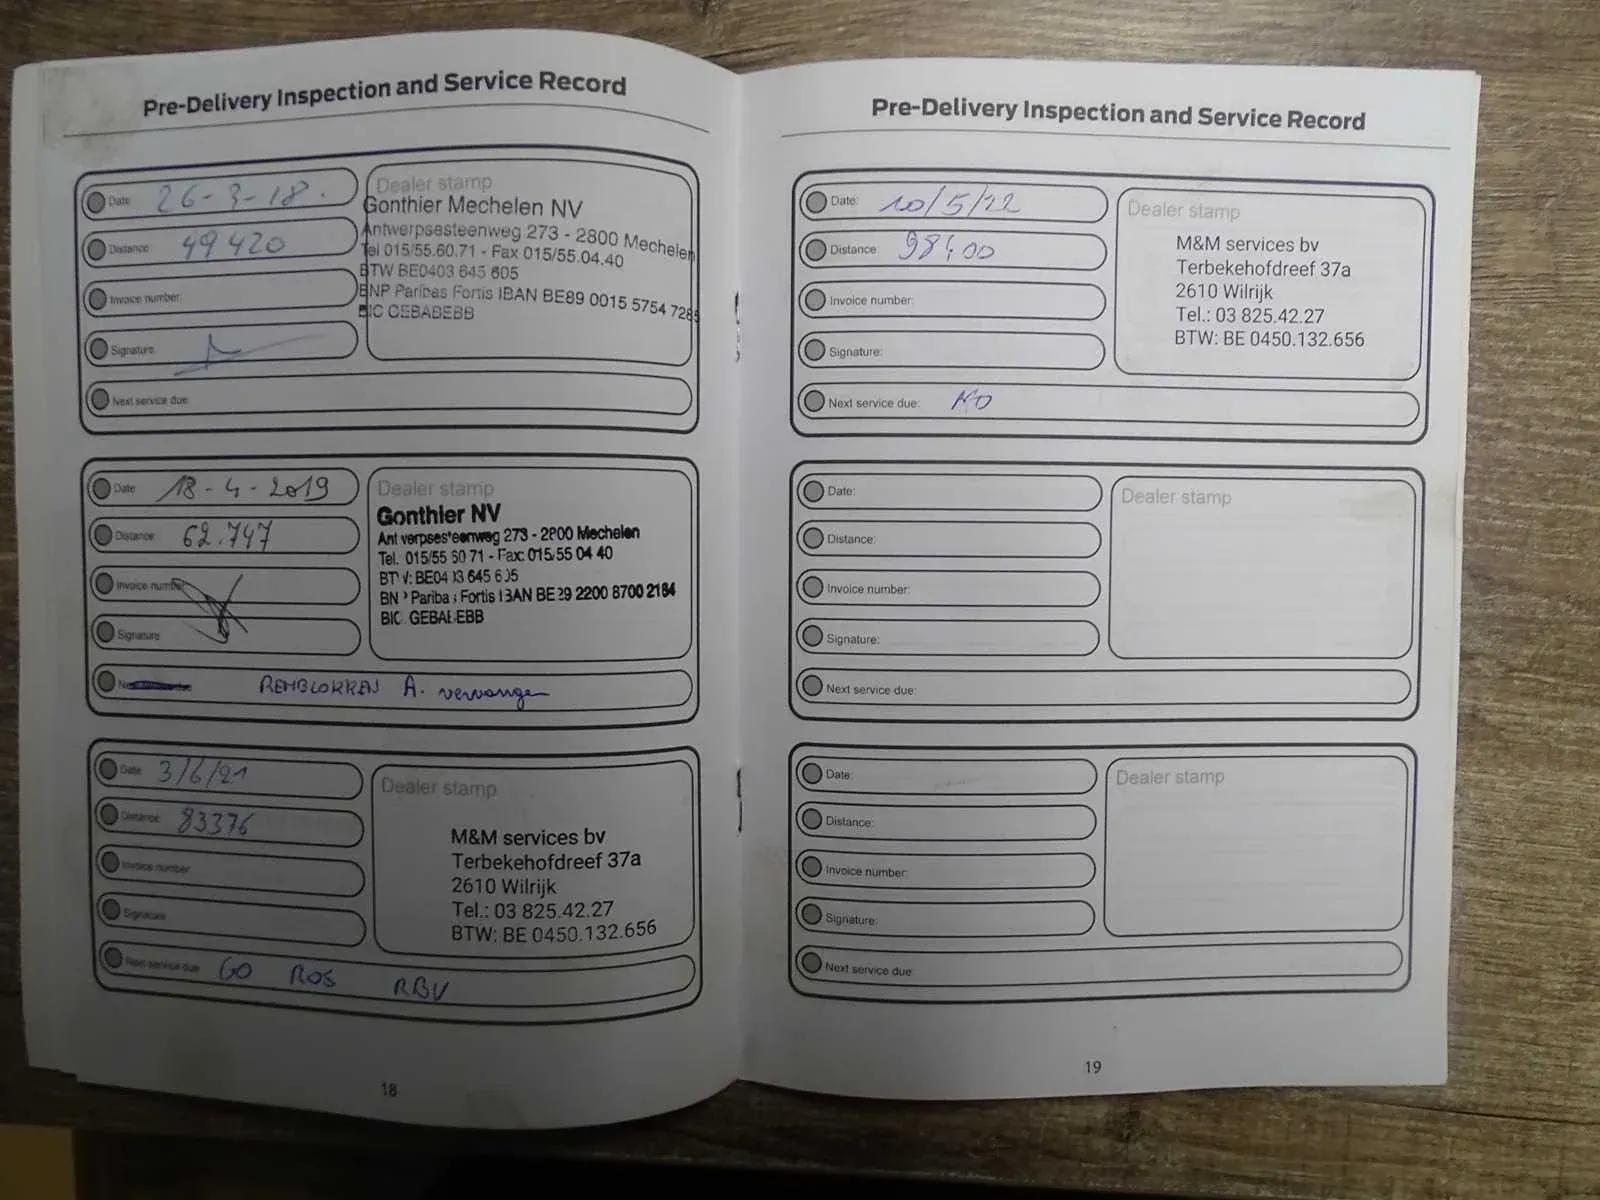 Pre-Delivery Inspection and Service Record
Date: 26-3-18.
Distance: 49420
Invoice number:
Signature:
Next service due:
Dealer stamp
Gonthier Mechelen NV
Antwerpsesteenweg 273 - 2800 Mechelen
Tel 015/55.60.71 - Fax 015/55.04.40
BTW BE0403 645 605
BNP Paribas Fortis IBAN BE89 0015 5754 7285
BIC GEBABEBB
Date: 18-4-2019
Distance: 62.747
Invoice number:
Signature:
REMBLOKKEN A. vervangen
Dealer stamp
Gonthier NV
Antwerpsesteenweg 273 - 2800 Mechelen
Tel. 015/55 60 71 - Fax: 015/55 04 40
BTW: BE04 03 645 605
BNP Paribas Fortis IBAN BE29 2200 8700 2184
BIC GEBABEBB
Date: 3/6/21
Distance: 83376
Invoice number:
Signature:
Next service due: GO ROS RBV
Dealer stamp
M&M services bv
Terbekehofdreef 37a
2610 Wilrijk
Tel.: 03 825.42.27
BTW: BE 0450.132.656
18
Pre-Delivery Inspection and Service Record
Date: 10/5/22
Distance:
Invoice number:
Signature:
Next service due:
Dealer stamp
M&M services bv
Terbekehofdreef 37a
2610 Wilrijk
Tel.: 03 825.42.27
BTW: BE 0450.132.656
Date:
Distance:
Invoice number:
Signature:
Next service due:
Dealer stamp
Date:
Distance:
Invoice number:
Signature:
Next service due:
Dealer stamp
19